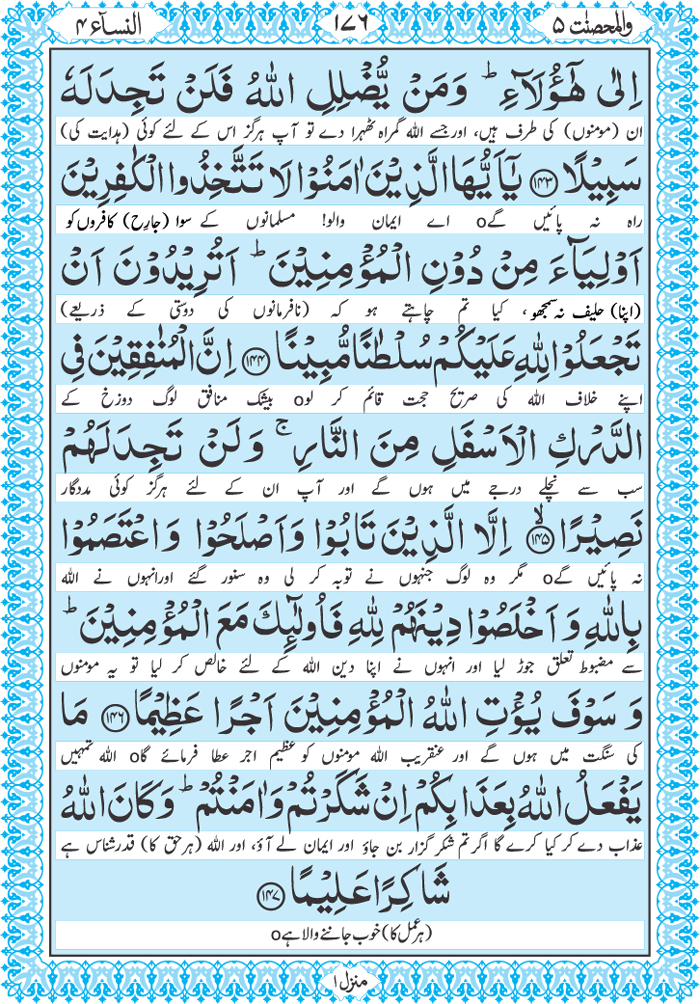 النسآء ۴ ۱۷۶ والمحصنٰت ۵
اِلٰى هٰٓؤُلَآءِ ؕ وَمَنۡ يُّضۡلِلِ اللّٰهُ فَلَنۡ تَجِدَ لَهٗ
ان (مومنوں) کی طرف ہیں، اور جسے اللہ گمراہ ٹھہرا دے تو آپ ہرگز اس کے لئے کوئی (ہدایت کی)
سَبِيۡلًا ﴿۱۴۳﴾ يٰۤاَيُّهَا الَّذِيۡنَ اٰمَنُوۡا لَا تَتَّخِذُوا الۡكٰفِرِيۡنَ
راہ نہ پائیں گےo اے ایمان والو! مسلمانوں کے سوا (جارِح) کافروں کو
اَوۡلِيَآءَ مِنۡ دُوۡنِ الۡمُؤۡمِنِيۡنَ ؕ اَتُرِيۡدُوۡنَ اَنۡ
(اپنا) حلیف نہ سمجھو، کیا تم چاہتے ہو کہ (نافرمانوں کی دوستی کے ذریعے)
تَجۡعَلُوۡا لِلّٰهِ عَلَيۡكُمۡ سُلۡطٰنًا مُّبِيۡنًا ﴿۱۴۴﴾ اِنَّ الۡمُنٰفِقِيۡنَ فِى
اپنے خلاف اللہ کی صریح حجت قائم کر لوo بیشک منافق لوگ دوزخ کے
الدَّرۡكِ الۡاَسۡفَلِ مِنَ النَّارِ ۚ وَلَنۡ تَجِدَ لَهُمۡ
سب سے نچلے درجے میں ہوں گے اور آپ ان کے لئے ہرگز کوئی مددگار
نَصِيۡرًا ۙ﴿۱۴۵﴾ اِلَّا الَّذِيۡنَ تَابُوۡا وَاَصۡلَحُوۡا وَاعۡتَصَمُوۡا
نہ پائیں گےo مگر وہ لوگ جنہوں نے توبہ کر لی وہ سنور گئے اورانہوں نے اللہ
بِاللّٰهِ وَاَخۡلَصُوۡا دِيۡنَهُمۡ لِلّٰهِ فَاُولٰٓئِكَ مَعَ الۡمُؤۡمِنِيۡنَ ؕ
سے مضبوط تعلق جوڑ لیا اور انہوں نے اپنا دین اللہ کے لئے خالص کر لیا تو یہ مومنوں
وَسَوۡفَ يُؤۡتِ اللّٰهُ الۡمُؤۡمِنِيۡنَ اَجۡرًا عَظِيۡمًا ﴿۱۴۶﴾ مَا
کی سنگت میں ہوں گے اور عنقریب اللہ مومنوں کو عظیم اجر عطا فرمائے گاo اللہ تمہیں
يَفۡعَلُ اللّٰهُ بِعَذَابِكُمۡ اِنۡ شَكَرۡتُمۡ وَاٰمَنۡتُمۡ ؕ وَكَانَ اللّٰهُ
عذاب دے کر کیا کرے گا اگر تم شکر گزار بن جاؤ اور ایمان لے آؤ، اور اللہ (ہر حق کا) قدر شناس ہے
شَاكِرًا عَلِيۡمًا ﴿۱۴۷﴾
(ہر عمل کا) خوب جاننے والا ہےo
منزل ۱